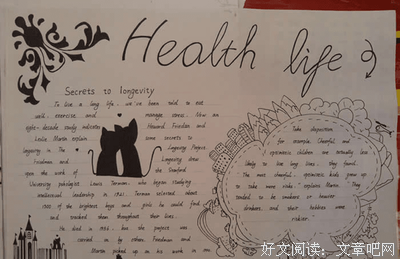 Health life
Secrets to longevity
To live a long life, we've been told to eat
well, exercise and manage stress. Now an
eight-decade study indicates Howard Friedman and
Leslie Martin explain some secrets to
longevity in The Longevity Project
Friedman and Longevity draw
upon the work of the Stanford
University psychologist Lewis Terman, who began studying
intellectual leadership in 1921. Terman selected about
1500 of the brightest boys and girls he could find
and tracked them throughout their lives.
He died in 1956, but the project was
carried on by others. Friedman and
Martin picked up his work in
Take disposition,
for example. Cheerful and
optimistic children are actually less
likely to live long lives, they found.
The most cheerful, optimistic kids grew up
to take more risks," explains Martin. They
tended to be smokers or heavier
drinkers, and their hobbies were
riskier.
好文阅读:文章吧网